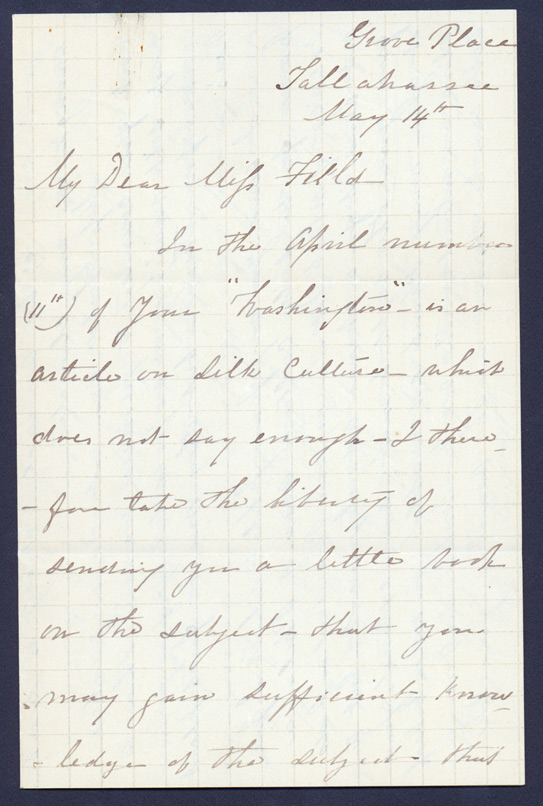 Grove Place
Tallahassee
May 14th
My Dear Miss Field
In the April number
(11th) of Your "Washington" - is an
article on Silk Culture - which
does not say enough - I there-
-fore take the liberty of
sending you a little book
on the subject - that you
may gain sufficient know-
-ledge of the subject - that